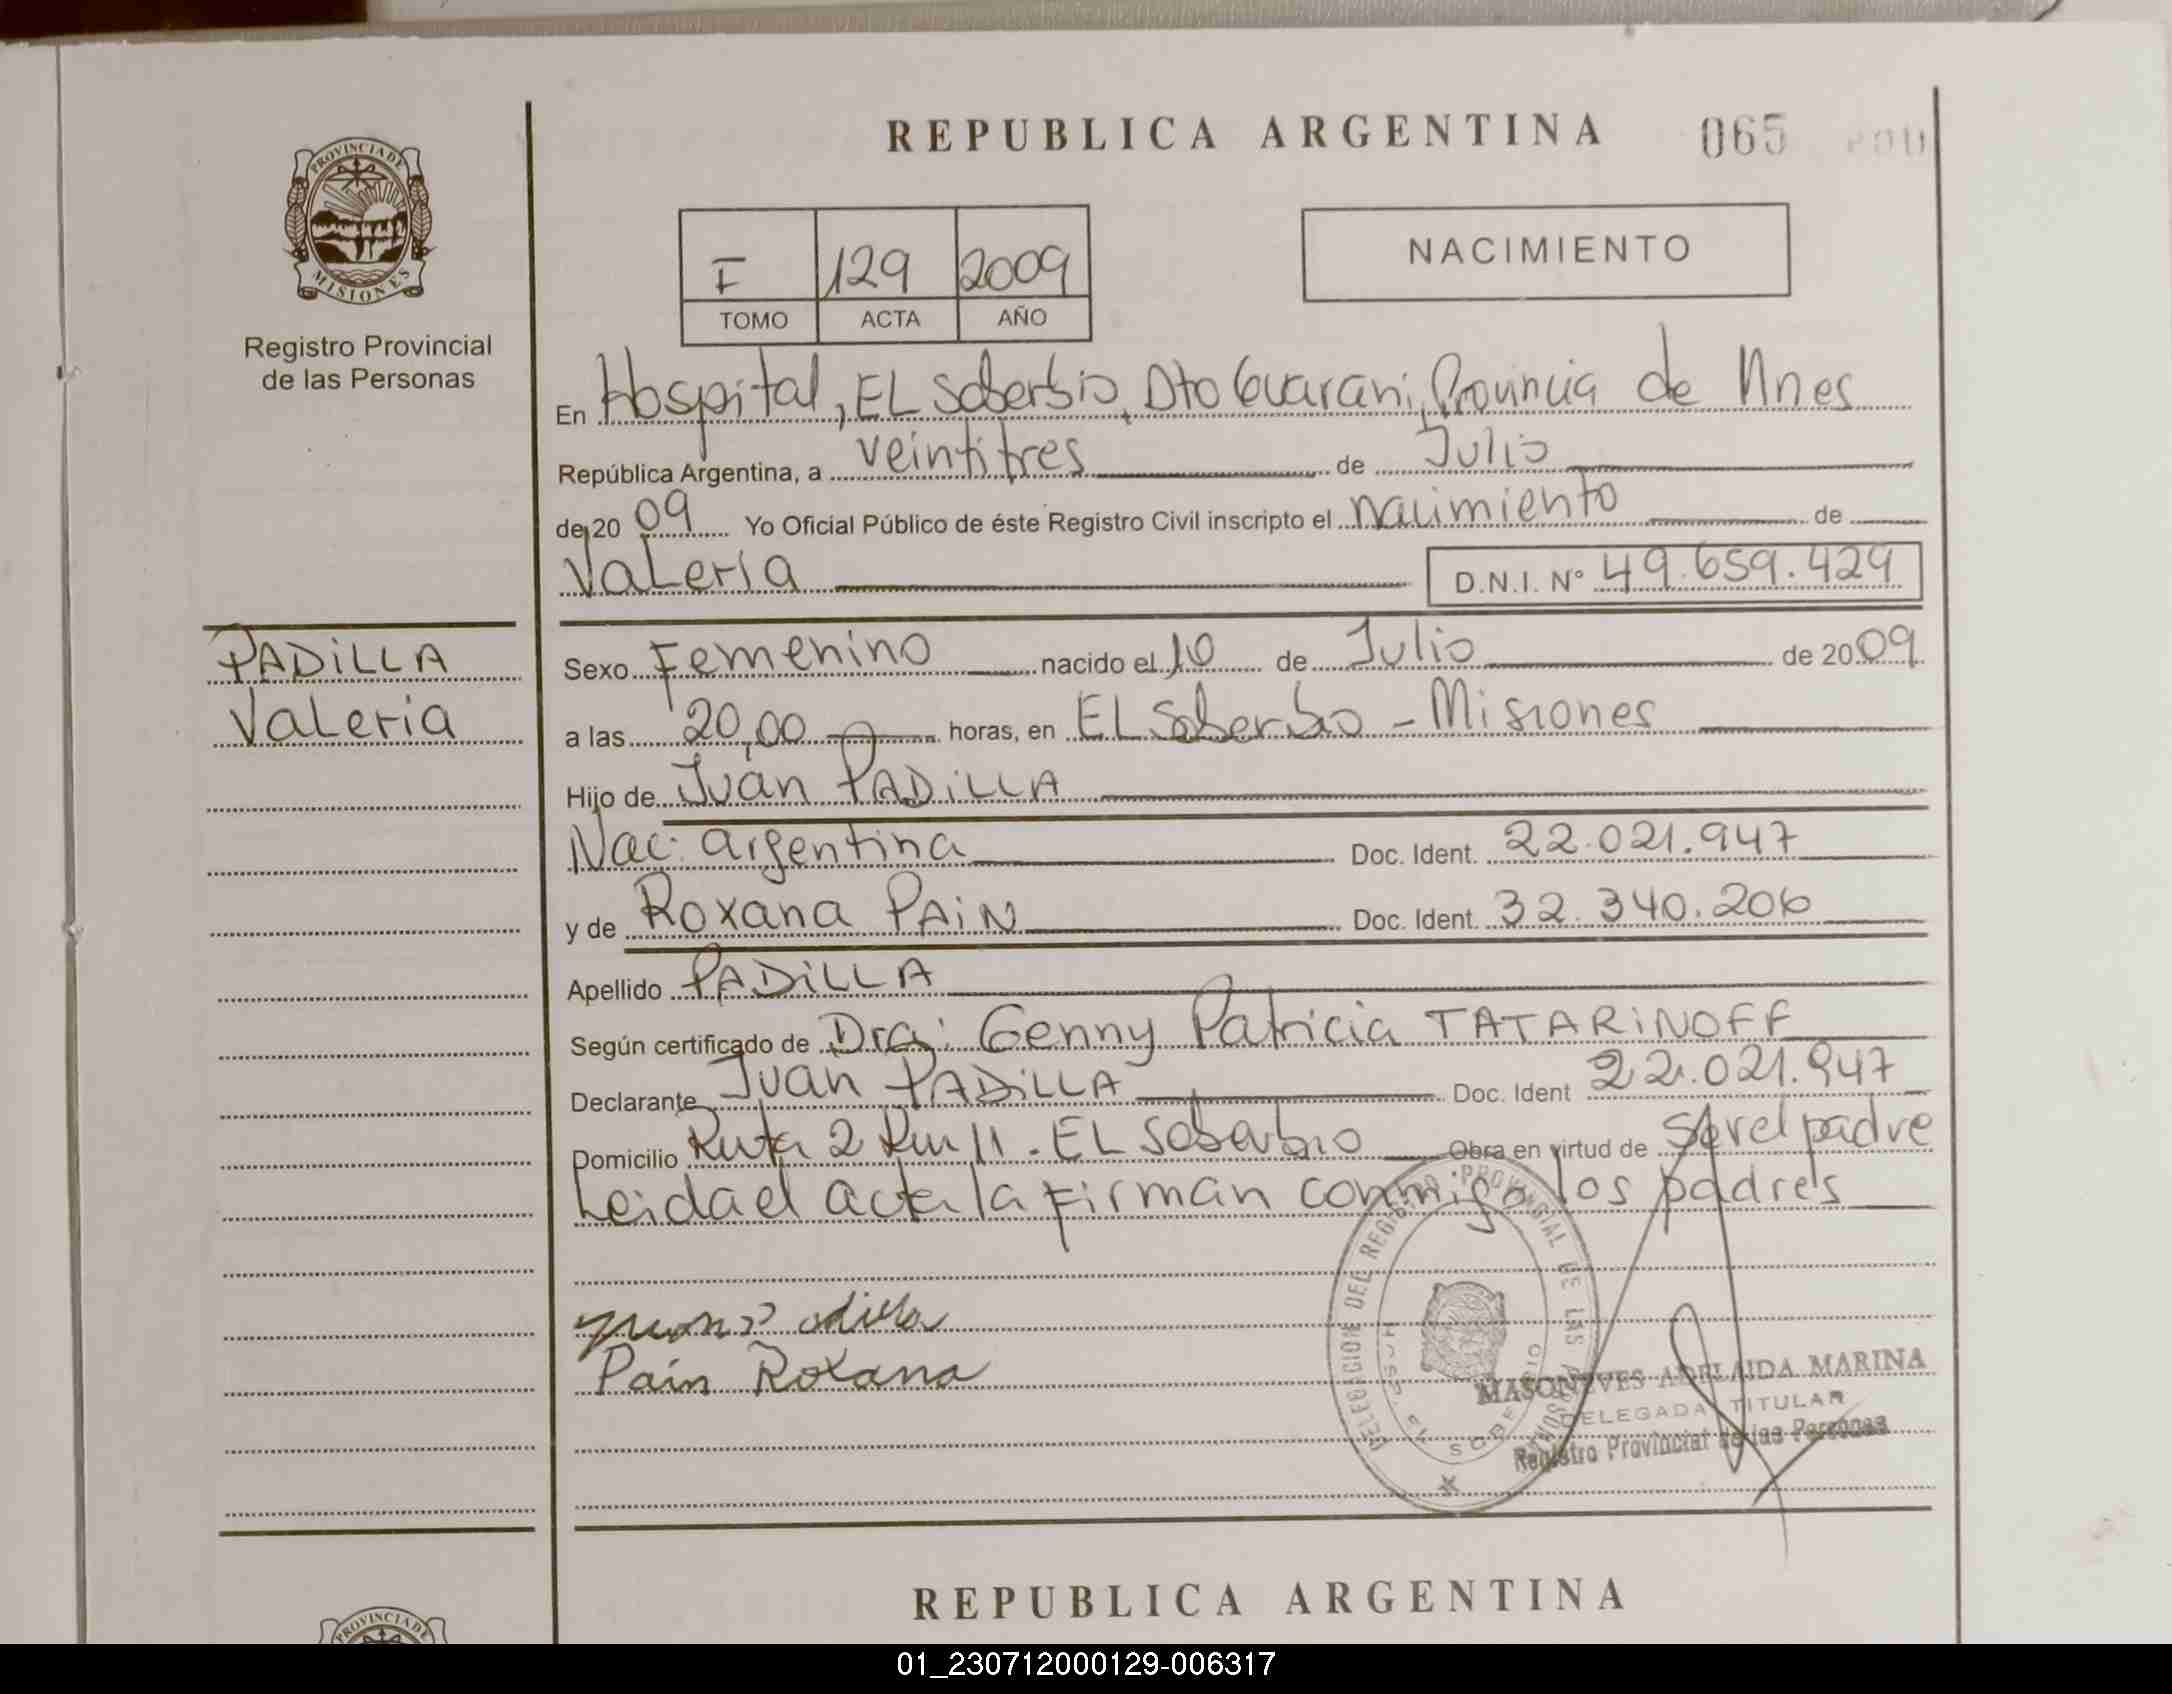 REPUBLICA ARGENTINA 065
PROVINCIA DE
MISIONES
Registro Provincial
de las Personas
I 129 2009
TOMO ACTA AÑO
NACIMIENTO
En Hospital, EL Soberbio, Dto Guarani, Provincia de Mnes
República Argentina, a veintitres de Julio
de 20 09 Yo Oficial Público de éste Registro Civil inscripto el nacimiento de
Valeria D.N.I. N° 49.659.429
PADiLLA
Valeria
Sexo Femenino nacido el 10 de Julio de 2009
a las 20,00 horas, en EL Soberbio - Misiones
Hijo de Juan PADiLLA
Nac. argentina Doc. Ident. 22.021.947
y de Roxana PAiN Doc. Ident. 32.340.206
Apellido PADiLLA
Según certificado de Dra: Genny Patricia TATARiNOFF
Declarante Juan PADiLLA Doc. Ident 22.021.947
Domicilio Ruta 2 Km 11 - EL Soberbio Obra en virtud de ser el padre
Leida el acta la firman conmigo los padres
Pain Roxana
DELEGACION DEL REGISTRO PROVINCIAL DE LAS PERSONAS
MASONEVES ADELAIDA MARINA
DELEGADA TITULAR
Registro Provincial de las Personas
REPUBLICA ARGENTINA
PROVINCIA DE
01_230712000129-006317